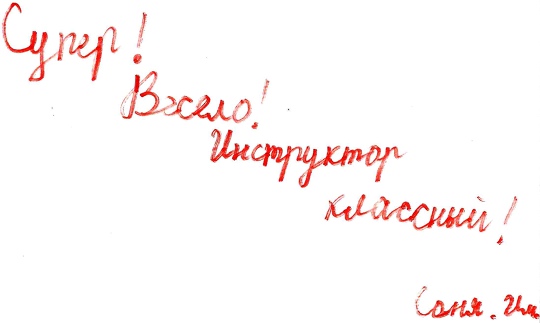 Супер!
Весело!
Инструктор
классный!
Соня.